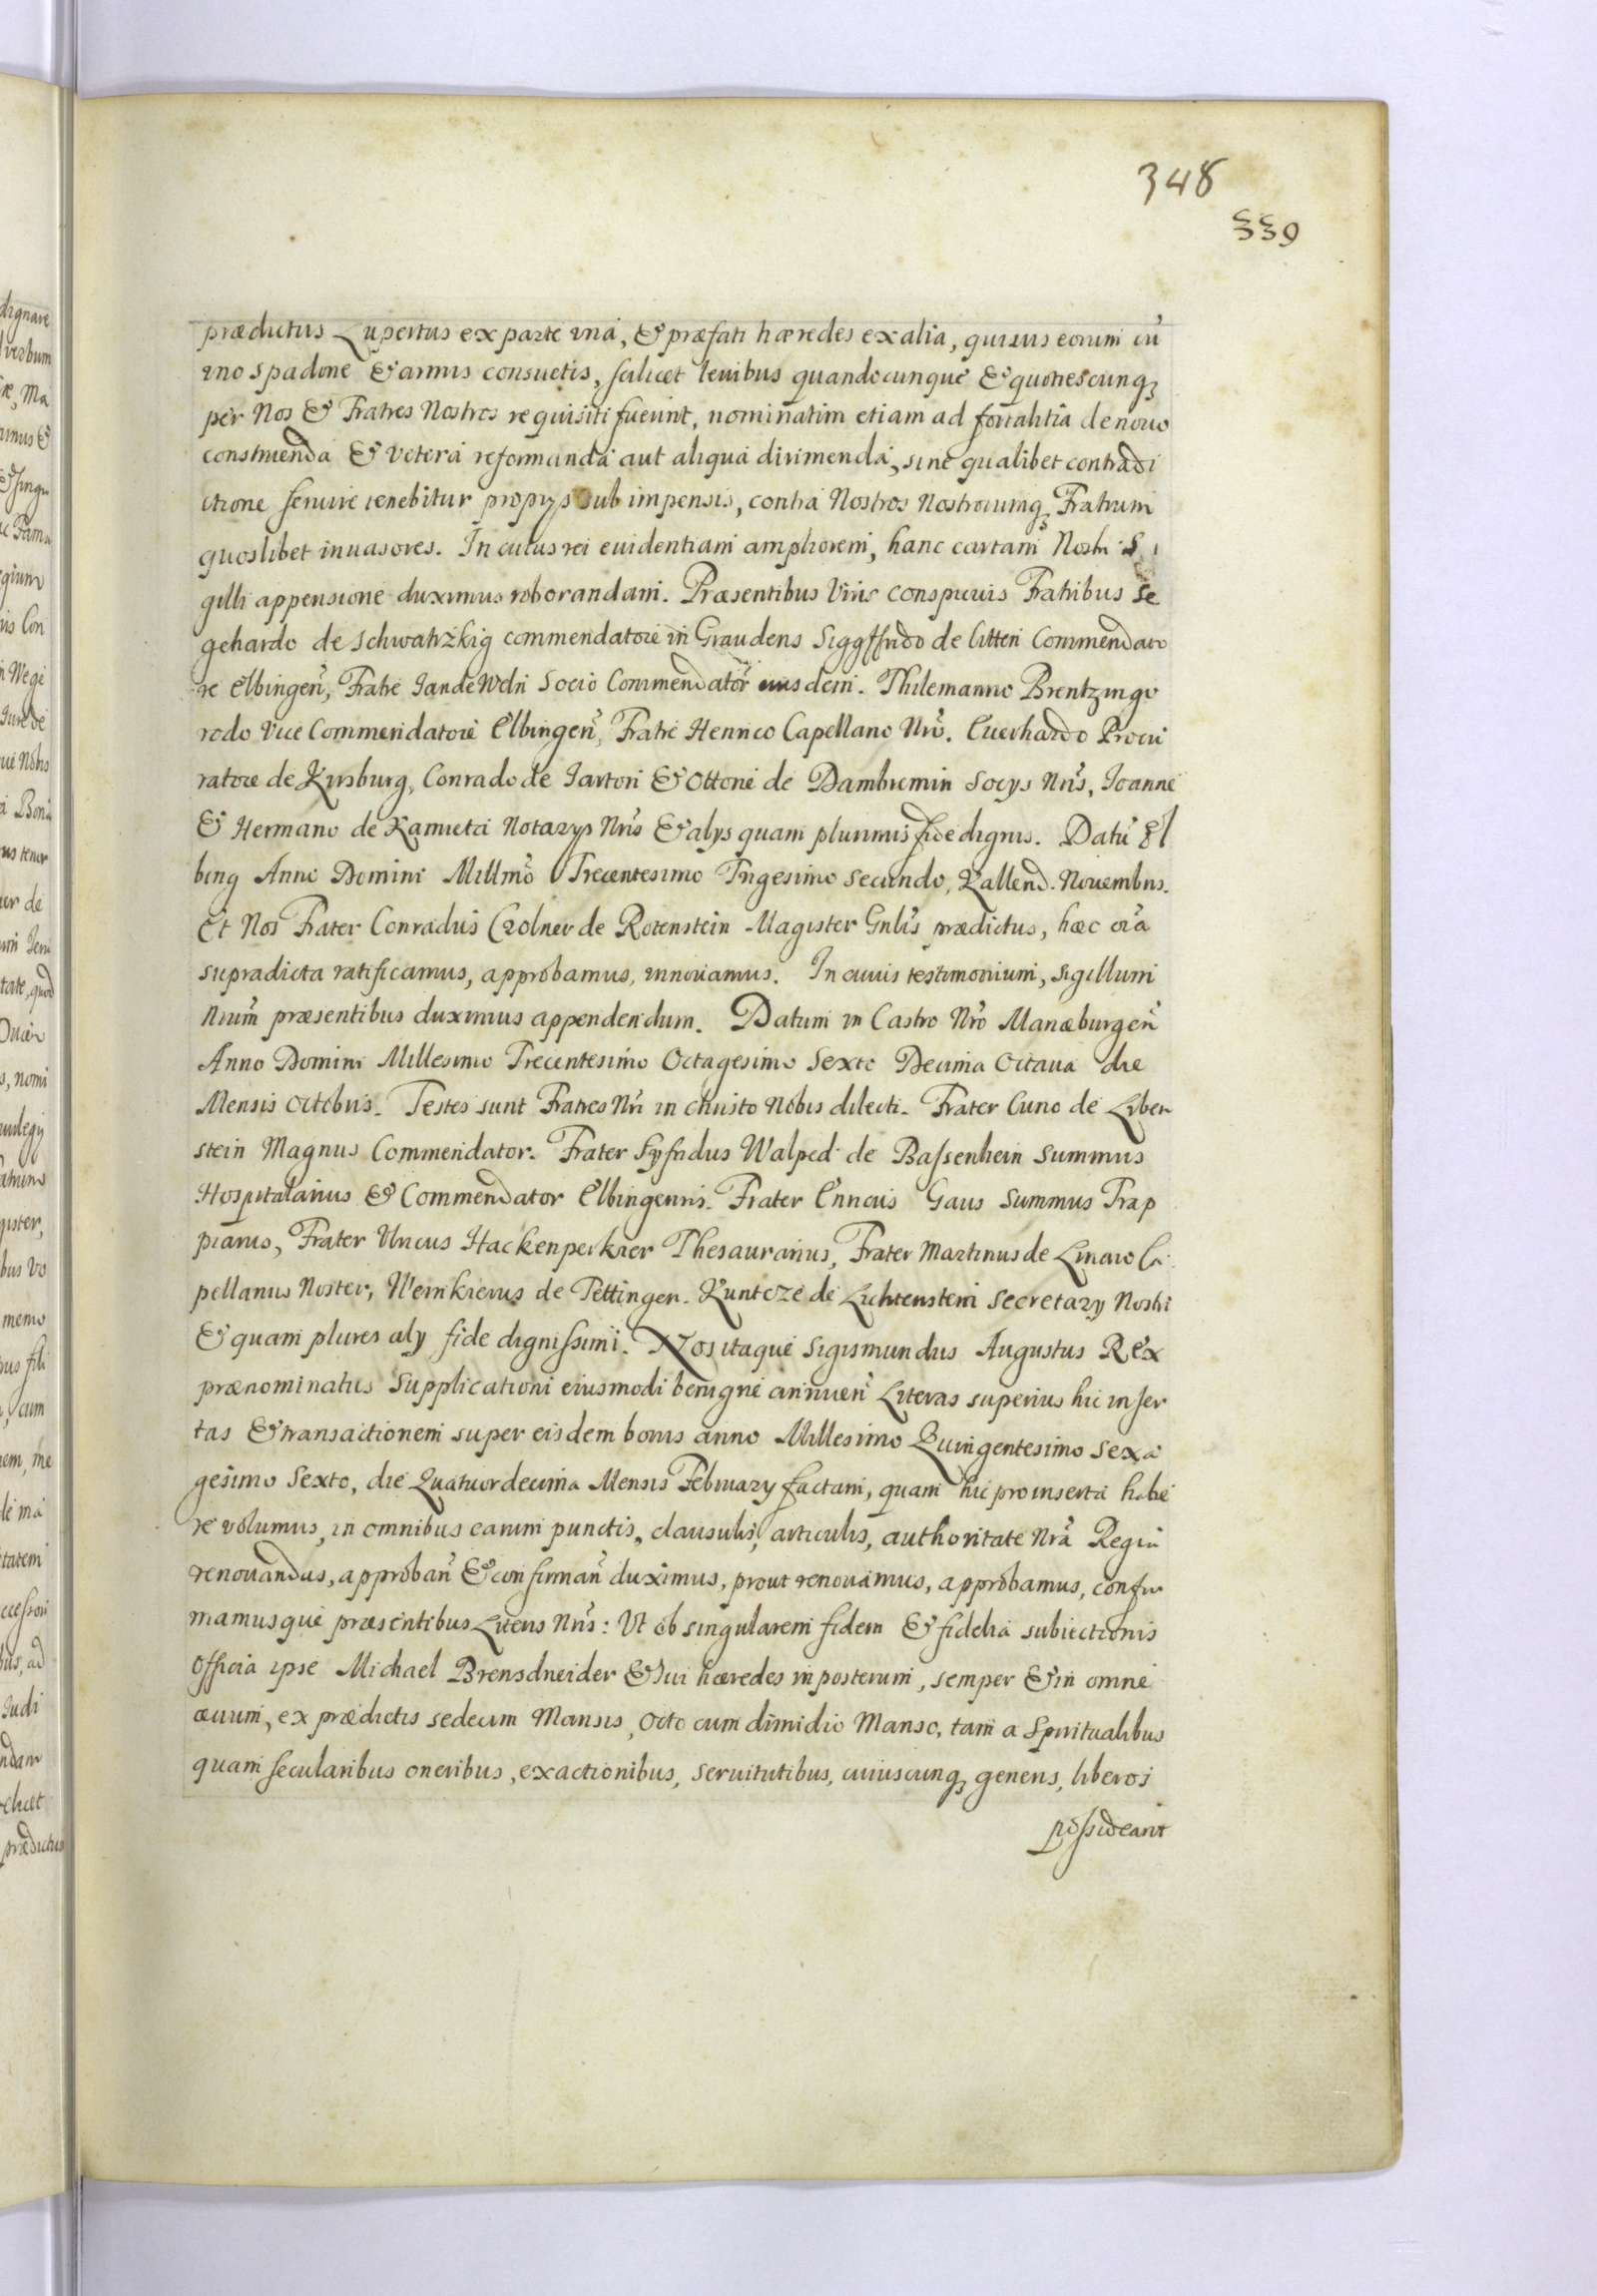 348
339
prædictus Lupertus ex parte vna, & præfati hæredes ex alia, quiuis eorum cũ
vno spadone & armis consuetis, scilicet leuibus quandocunque & quotiescunq
per Nos & Fratres Nostros requisiti fuerint, nominatim etiam ad fortalitia de nouo
construenda & vetera reformanda aut aliqua dirimenda, sine qualibet contradi
ctione seruire tenebitur proprys sub impensis, contra Nostros Nostrorumq Fratrum
quoslibet inuasores. In cuius rei euidentiam ampliorem, hanc cartam Nostri Si
gilli appensione duximus roborandam. Præsentibus Viris conspicuis Fratribus Se
gehardo de Schwatrzkig commendatore in Graudens Siggffrido de Sitten Commendato
re Elbingeñ, Fratre Jande Weln Socio Commendator̃ eiusdem. Thilemanno Brentzingo
rodo Vice Commendatore Elbingeñ, Fratre Henrico Capellano Nrõ. Euerhardo Procu
ratore de Kirsburg, Conrado de Jartori & Ottone de Dambremin Socys Nris̃, Joanne
& Hermano de Kamieta Notarys Nris̃ & alys quam plurimis fide dignis. Datũ El
bing Anno Domini Millmõ Trecentesimo Trigesimo Secundo, Kallend. Nouembris.
Et Nos Frater Conradus Czolner de Rotenstein Magister Gnlis̃ prædictus, hæc oĩa
supradicta ratificamus, approbamus, innouamus. In cuius testimonium, sigillum
Nrum̃ præsentibus duximus appendendum. Datum in Castro Nrõ Mariæburgeñ
Anno Domini Millesimo Trecentesimo Octagesimo Sexto Decima Octaua die
Mensis Octobris. Testes sunt Fratres Nri̅ in Christo Nobis dilecti. Frater Cuno de Liben
stein Magnus Commendator. Frater Syfridus Walped de Bassenhein Summus
Hospitalarius & Commendator Elbingensis. Frater Enneuis Gaus Summus Trap
piarius, Frater Vricus Hackenperkier Thesaurarius, Frater Martinus de Linaio Ca
pellanus Noster, Wernkierus de Tettingen. Kunteze de Lichtenstein Secretary Nostri
& quam plures aly fide dignissimi. Nos itaque Sigismundus Augustus Rex
prænominatus Supplicationi eiusmodi benigne annueñ Literas superius hic inser
tas & transactionem super eisdem bonis anno Millesimo Quingentesimo Sexa
gesimo Sexto, die Quatuordecima Mensis February factam, quam hic pro inserta habe
re volumus, in omnibus earum punctis, clausulis, articulis, authoritate Nrã Regia
renouandas, approbañ & confirmañ duximus, prout renouamus, approbamus, confir
mamusque præsentibus Literis Nris̃: Vt ob singularem fidem & fidelia subiectionis
Officia ipse Michael Brensdneider & sui hæredes in posterum, semper & in omne
æuum, ex prædictis sedecim Mansis, Octo cum dimidio Manso, tam a Spiritualibus
quam secularibus oneribus, exactionibus, seruitutibus, cuiuscunq generis, liberos
possideant